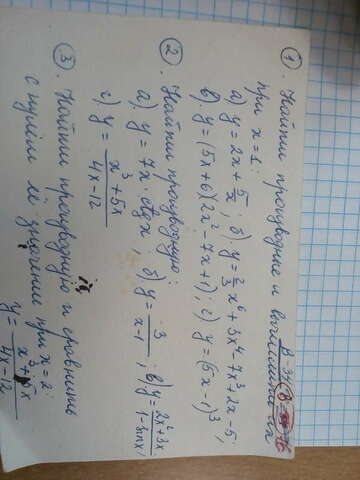 В-3
① Найти производные и вычислить их
при x=1:
а) y = 2x + 5/x; б) y = 2/3 x⁶ + 3x⁴ - 7x³ + 2x - 5;
в) y = (5x+6)(2x² - 7x + 1); г) y = (5x - 1)³
② Найти производную:
а) y = 7x · ctgx; б) y = 3/(x-1); в) y = (2x²+3x)/(1-sinx);
г) y = (x³+5x)/(4x-12)
③. Найти производную и сравнить
с нулём её значение при x=2:
y = (x³+5x)/(4x-12)